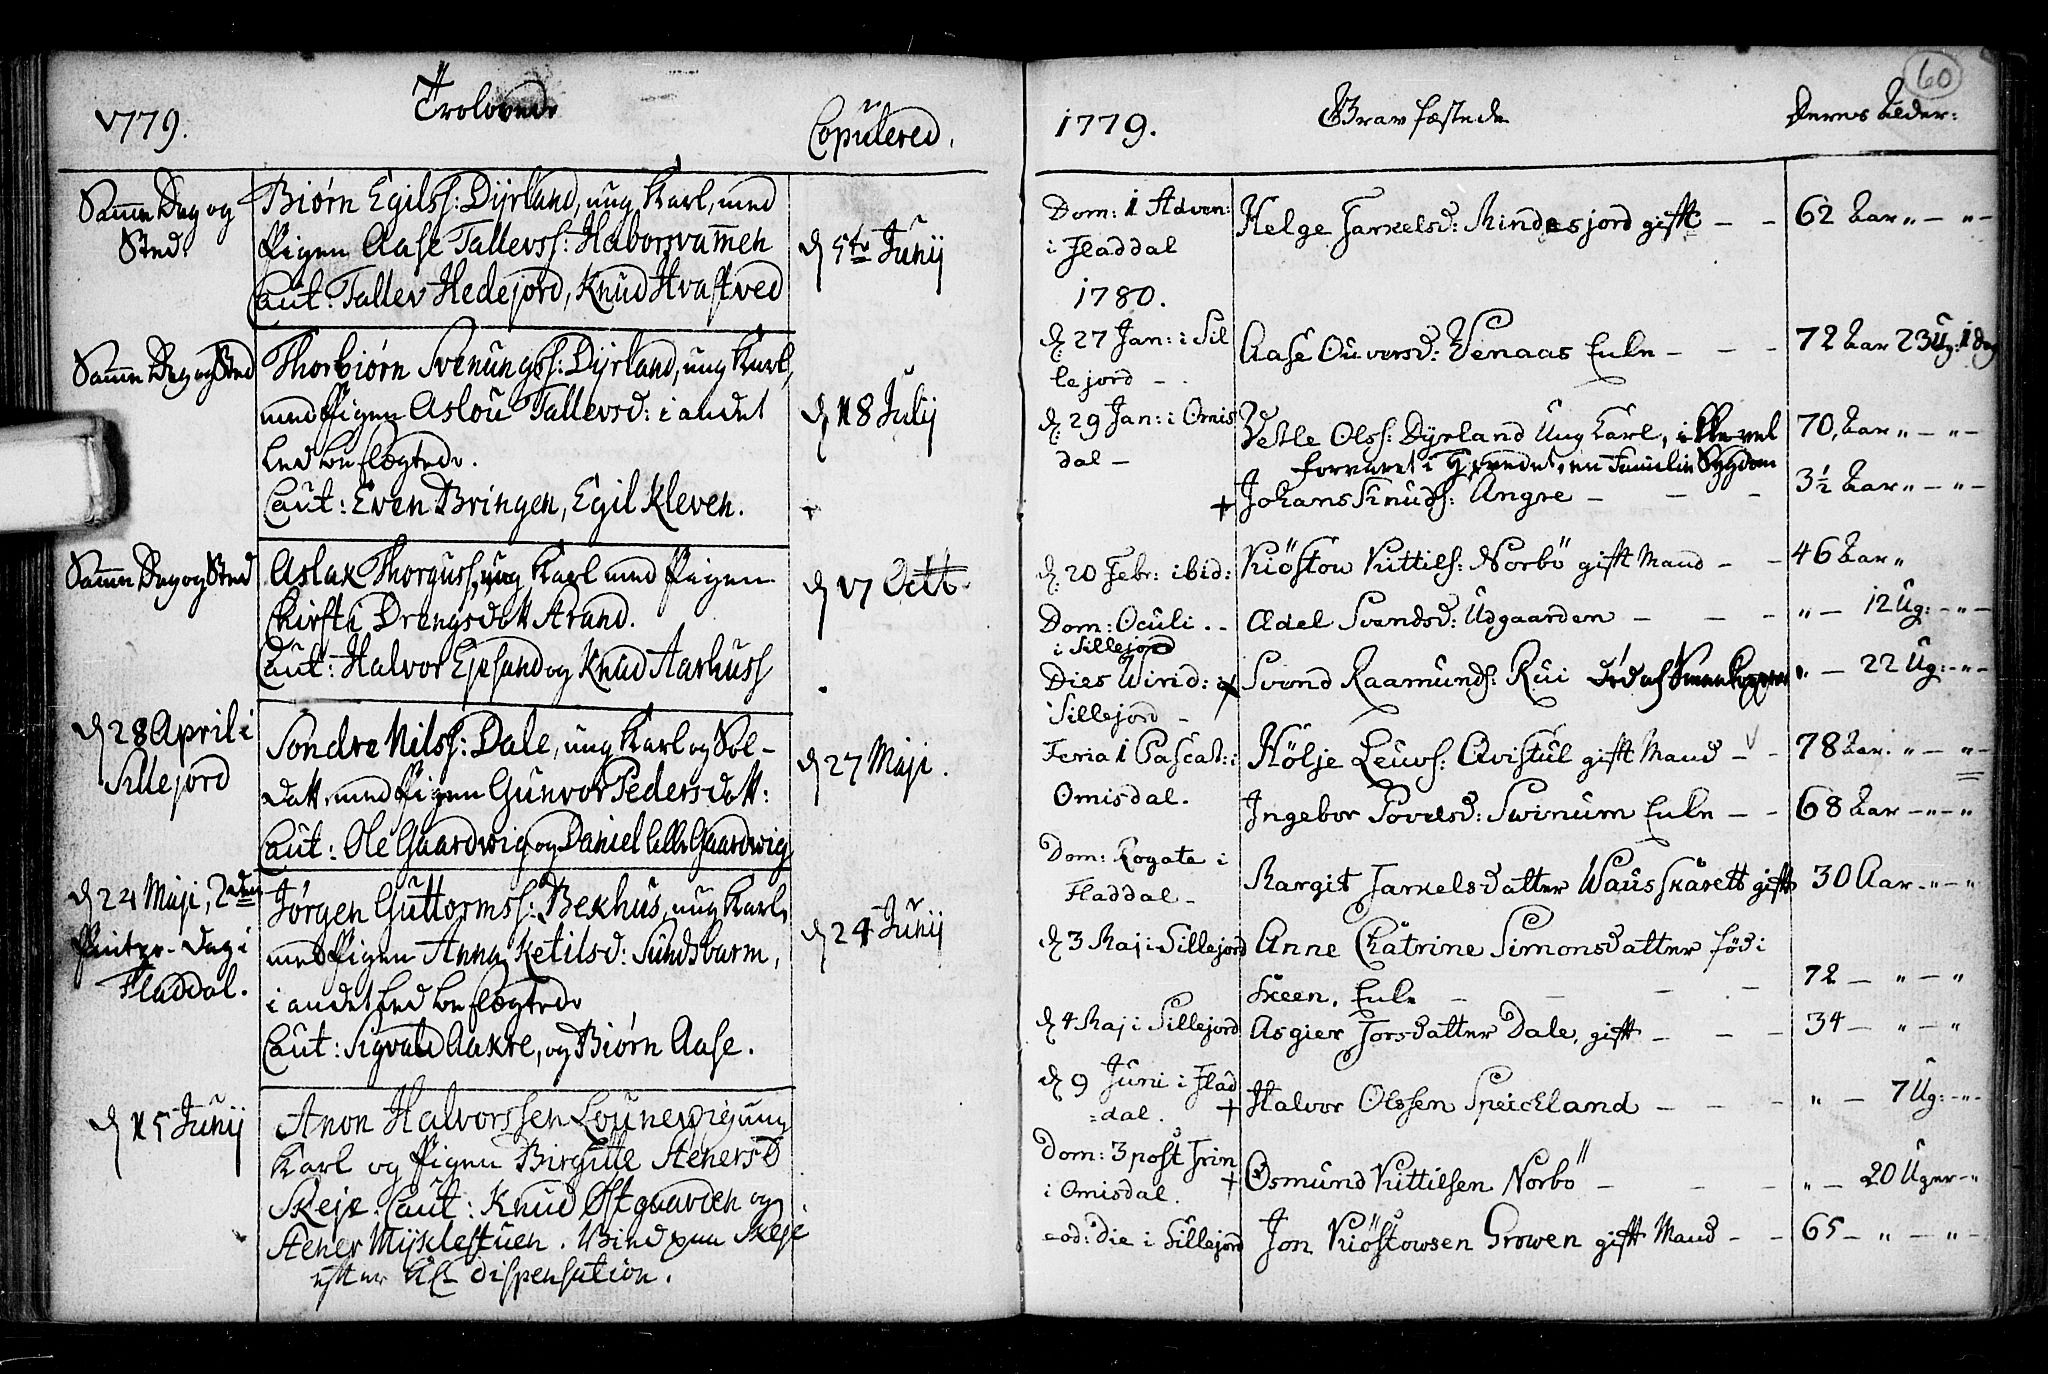 1779.
Trolovede
Copulered.
Samme Dag og
Sted.
Biørn Egilss: Dyrland, ung Karl, med
Pigen Aase Tallevss: Haborsvammen
Caut: Tallev Hedejord, Knud Hvastved
d 5te Junij
Samme Dag og Sted
Thorbiørn Svenungss: Dyrland, ung Karl,
med Pigen Aslou Tallevsd: i andet
Led beslægtede.
Caut: Even Bringen, Egil Kleven.
d 18 Julij
Samme Dag og Sted
Aslak Thorguss, ung Karl med Pigen
Kirsti Drengsdatt Strand.
Caut: Halvor Ejesund og Knud Aarhuss
d 17 Octb.
d 28 April i
Sillejord
Sondre Nilss: Dale, ung Karl og Sol-
datt, med Pigen Gunvor Pedersdatt:
Caut: Ole Gaardvig og Daniel Gaardvig
d 27 Maji.
d 24 Maji, 2den
Pintze-Dag i
Fladdal.
Jørgen Guttormss: Bekhus, ung Karl,
med Pigen Anna Ketilsd: Sundsbarm,
i andet Led beslægtede
Caut: Sigvald Aakre, og Biørn Aase.
d 24 Junij
d 15 Junij
Anon Halvorssen Lounevig ung
Karl og Pigen Birgitte Stenersd
Skeje. Caut: Knud Østgaarden og
Stener Myklestuen. Vied paa Skeje
efter dispensation.
60
1779.
Gravfæstede
Deres Alder:
Dom: 1 Adven:
i Fladdal
Helge Tarkelsd: Mindesjord gift
62 Aar " — " —
1780.
d: 27 Jan: i Sil
lejord —
Aase Ouversd: Venaas Enke — — —
72 Aar 23 Ug: 1 dag
d: 29 Jan: i Omis
dal —
Vetle Olss: Dyrland Ung Karl, ikke vel
forvaret i Hovedet, en Familie Sygdom
70, Aar " — " —
+ Johans Knuds: Angre — — —
3½ Aar " — " —
d: 20 Febr: ibid:
Kiöstou Kittils: Norbö gift Mand — —
46 Aar "
Dom: Oculi . —
i Sillejord
Ædel Svendsd: Udgaarden — — —
" — 12 Ug: — " —
Dies Virid:
i Sillejord —
Svend Raamunds: Rui Död af Smaakopper
" — 22 Ug: — " —
Feria 1 Pascat: i
Omisdal.
Hölje Leuvs: Qvistul gift Mand — —
78 Aar. " — " —
Ingebor Povelsd: Svinum Enke — —
68 Aar — " — "
Dom: Rogate i
Fladdal —
Margit Tarkelsdatter Vausskarett gift
30 Aar — " — "
d: 3 Maj i Sillejord
Anne Chatrine Simonsdatter föd i
Skeen, Enke — — — —
72 — " — "
d: 4 Maj i Sillejord
Asgier Torsdatter Dale, gift — — —
34 — " — "
d: 9 Juni i Flad
=dal.
+ Halvor Olssen Speickland — — —
" — 7 Ug: — " —
Dom: 3 post Trin
i Omisdal.
+ Osmund Kittilsen Norbö — — —
" — 20 Uger — "
eod: die i Sillejord
Jon Kiöstowsen Growen gift Mand — —
65 — " — " —